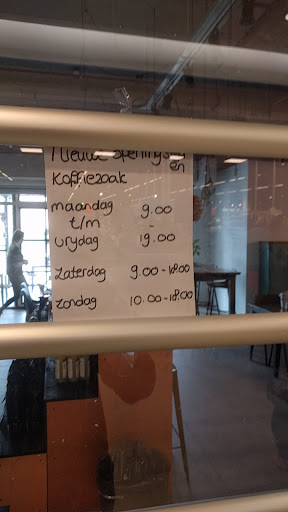 Nieuwe openings
en
Koffiezoak
maandag 9.00
t/m -
vrydag 19.00
zaterdag 9.00-18.00
zondag 10.00-18.00